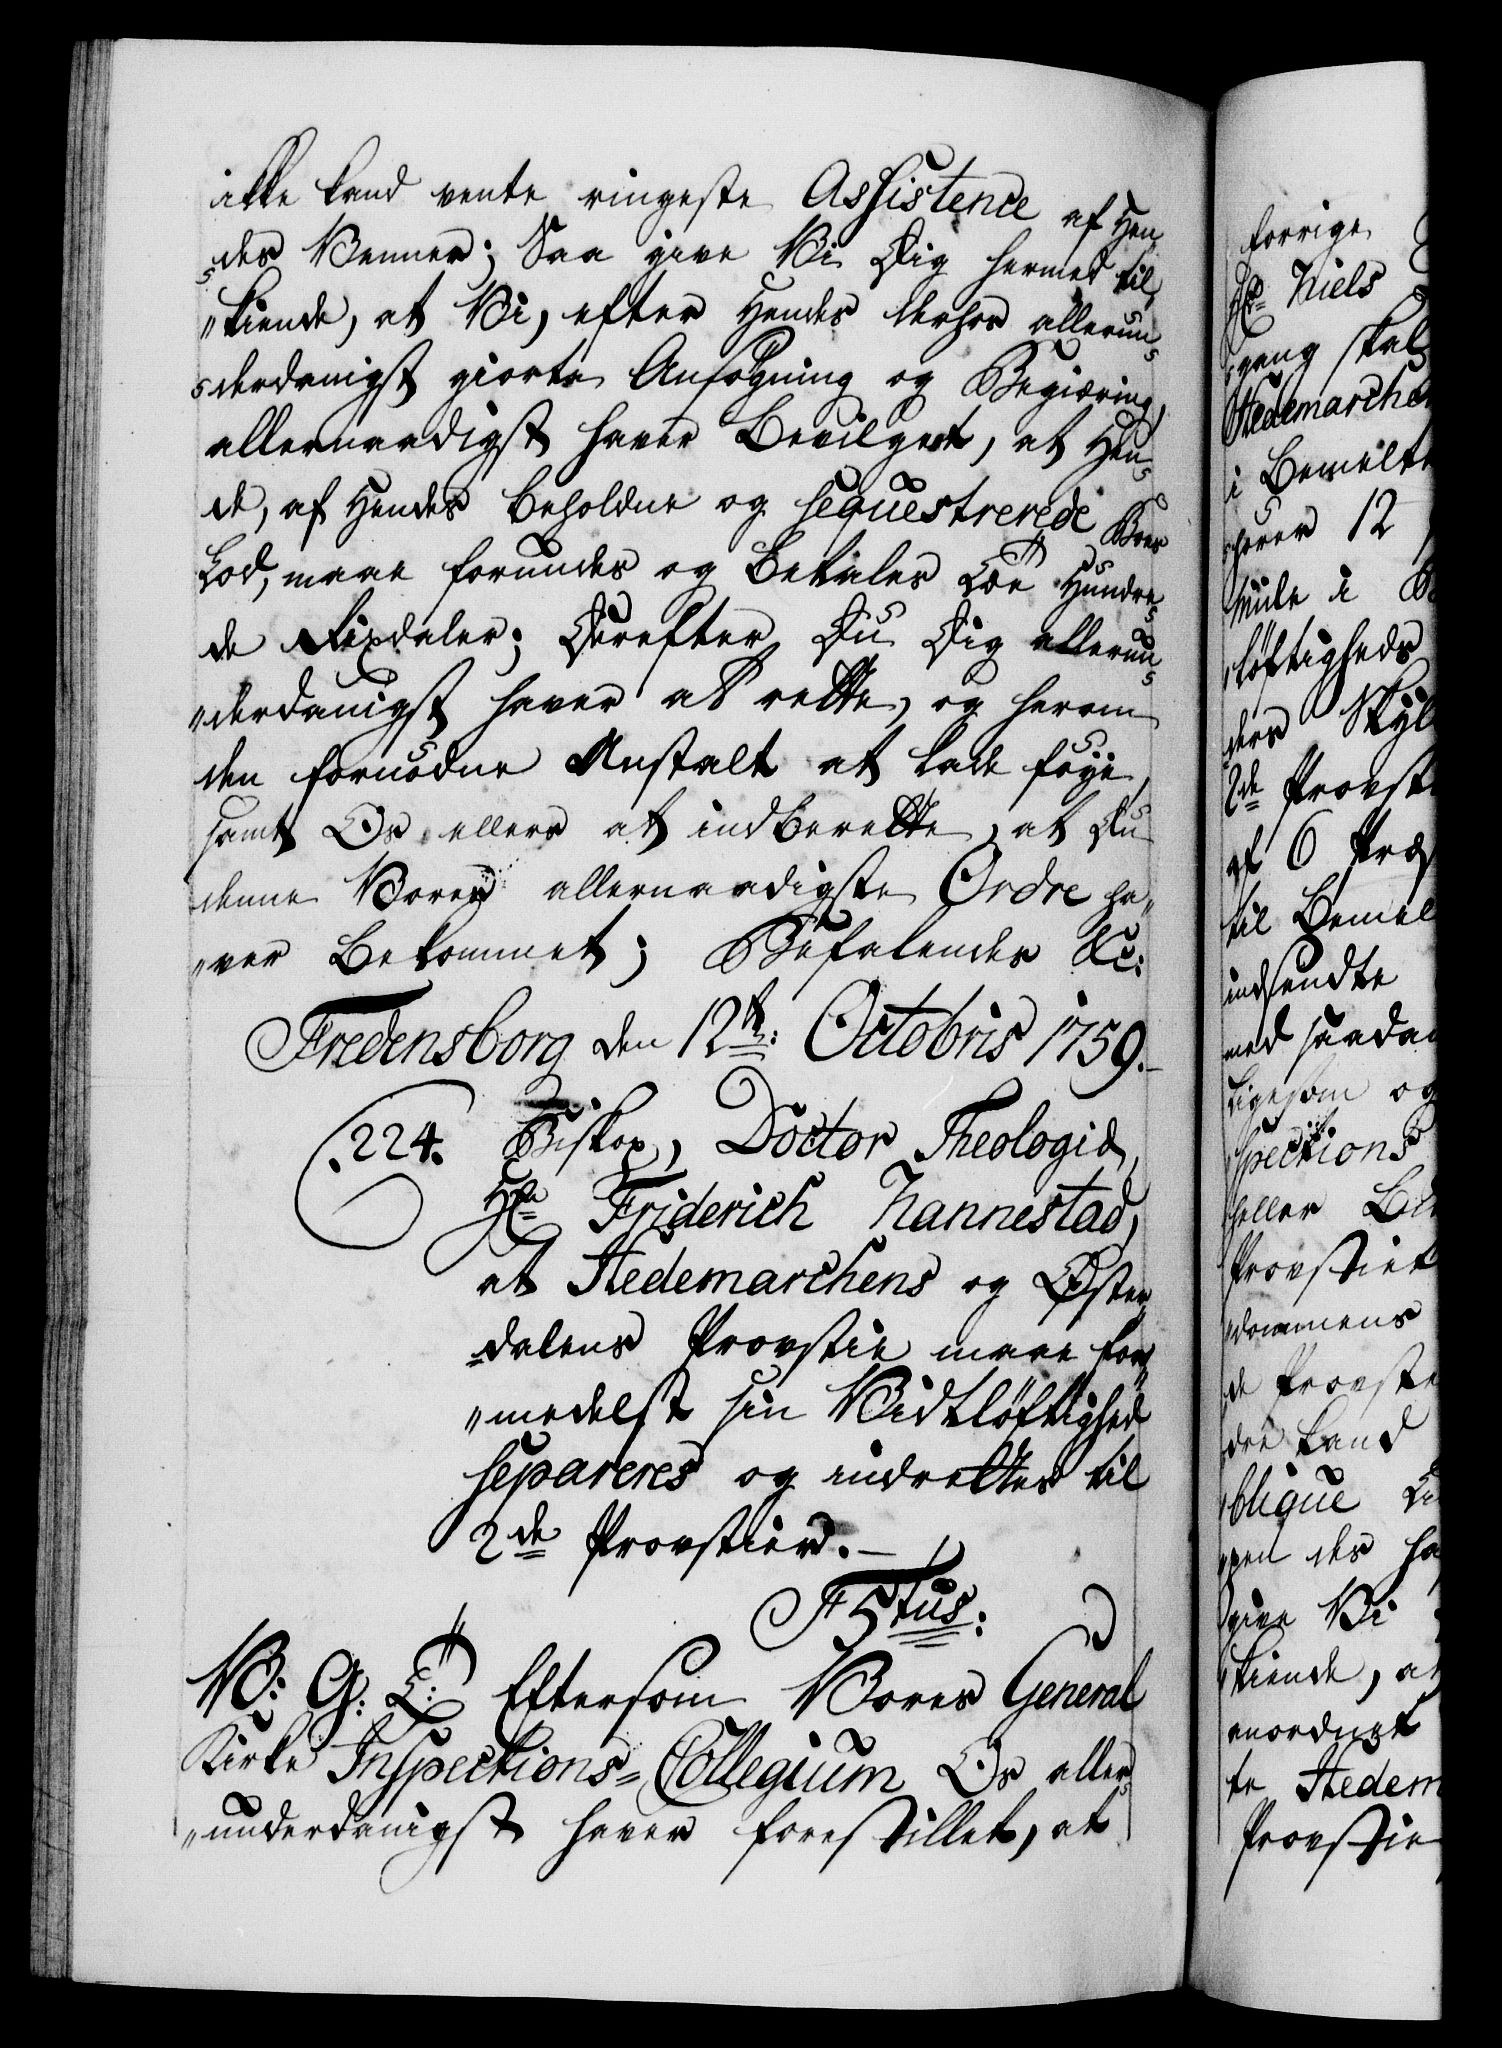 ikke kand vente ringeste Assistence af Hen„
des Venner; Saa give Vi Dig hermed til„
„kiende, at Vi, efter Hendes derhos allerun„
derdanigst giorte Ansøgning og Begiæring,
allernaadigst haver Bevilget, at Hen„
de, af Hendes beholdne og sequestrerede Boes
Lod, maae forundes og betales Toe Hundre„
de Rixdaler; Derefter Du Dig allerun„
„derdanigst haver at rette, og herom
den fornødne Anstalt at lade føye,
samt Os ellers at indberette, at Du
denne Vores allernaadigste Ordre ha„
„ver bekommet; Befalendes &c:
Fredensborg den 12te: Octobris 1759.
224. Biskop, Doctor Theologiæ,
Hr Friderich Nannestad,
at Hedemarchens og Øster„
dalens Provstie maae for„
„medelst sin Vidtløftighed
separeres og indrettes til
2de Provstier.
F5tus:
V: G: T: Eftersom Vores General
Kirke Inspections-Collegium Os aller„
„underdanigst haver forestillet, at
forrige
Hr Niels
gang skal
Hedemarche
i bemelte
hører 12
Mile i
løftigheds
ders
2de Provsti
af 6 Præ
til bemel
indsendte
med saadan
ligesom og
spections
heller
Provstiet
dommens
de Provste
dre kand
blique
pen des ha
give Vi
kiende, at
anordnet
te Hedem
Provstie